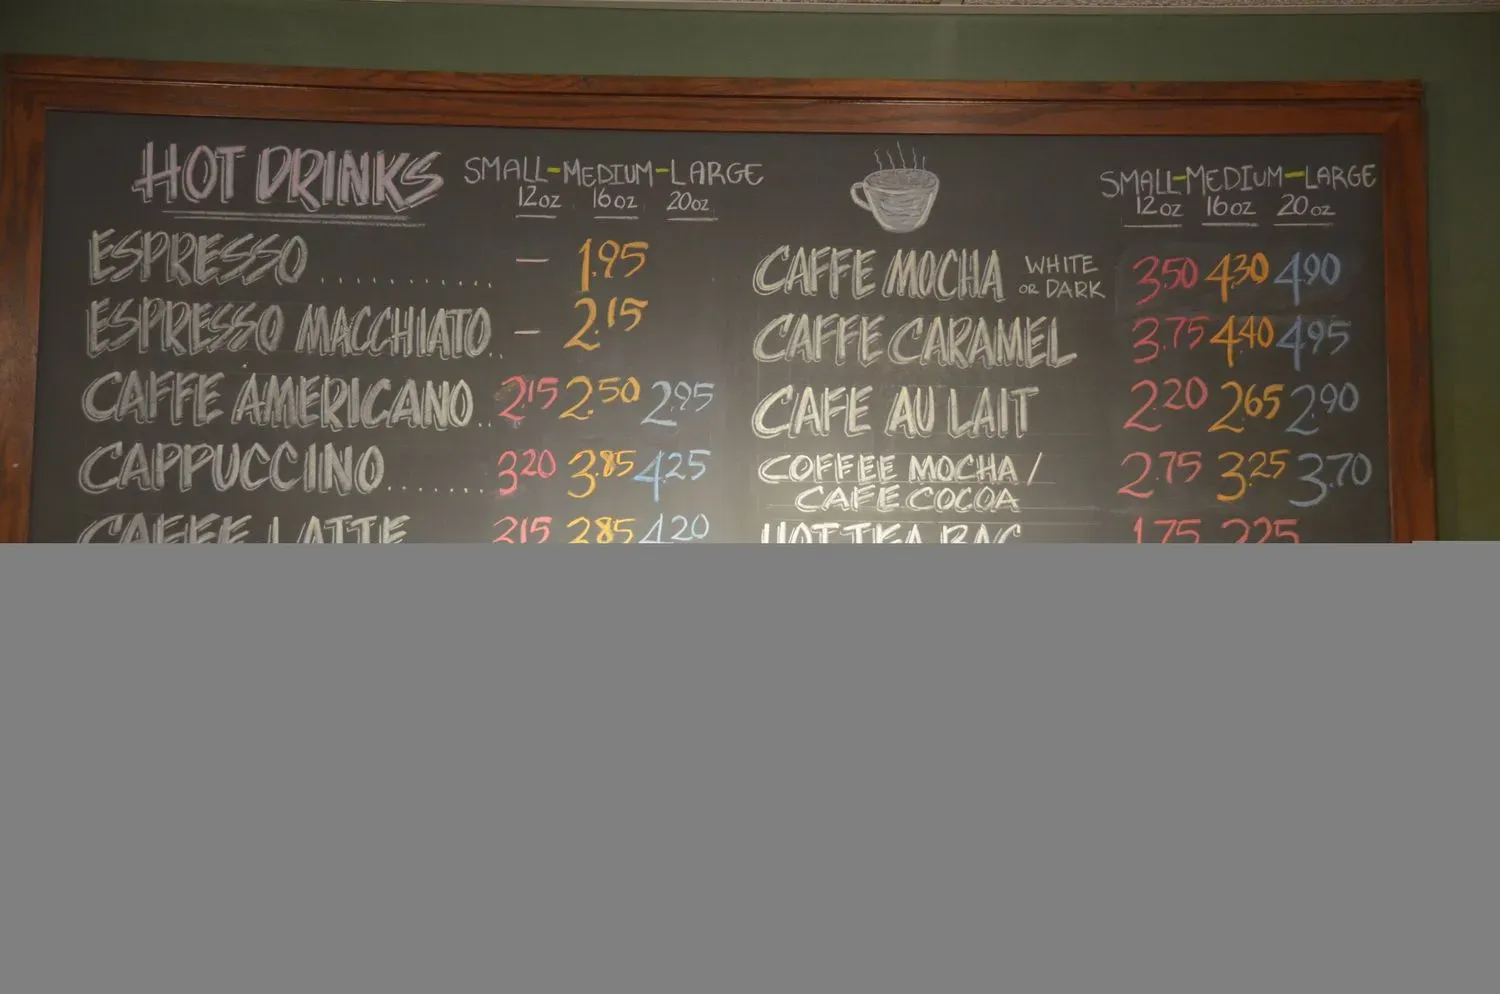 HOT DRINKS SMALL-MEDIUM-LARGE
12oz 16oz 20oz
ESPRESSO ........... - 1.95
ESPRESSO MACCHIATO.. - 2.15
CAFFE AMERICANO.. 2.15 2.50 2.95
CAPPUCCINO....... 3.20 3.85 4.25
CAFFE LATTE 3.15 3.85 4.20
SMALL-MEDIUM-LARGE
12oz 16oz 20oz
CAFFE MOCHA WHITE OR DARK 3.50 4.30 4.90
CAFFE CARAMEL 3.75 4.40 4.95
CAFE AU LAIT 2.20 2.65 2.90
COFFEE MOCHA / 2.75 3.25 3.70
CAFE COCOA
HOT TEA BAG 1.75 2.25